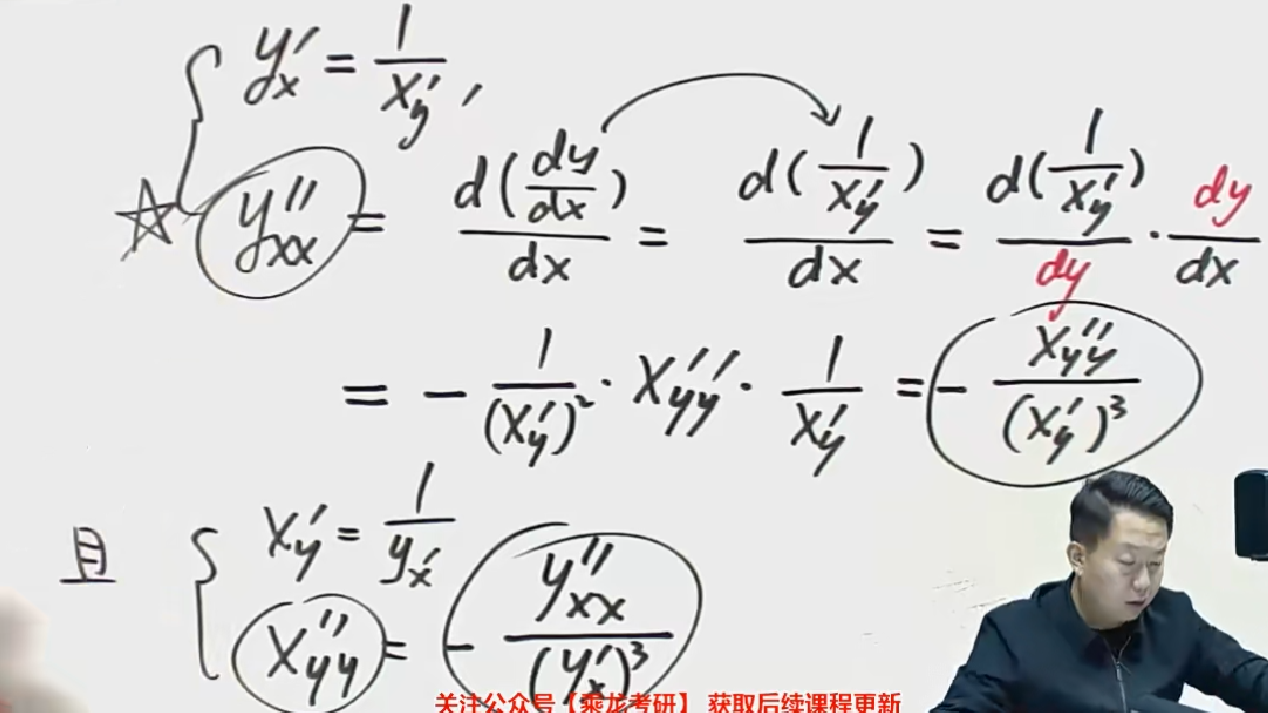 y'ₓ = 1/x'ᵧ ,
☆ y''ₓₓ = d(dy/dx)/dx = d(1/x'ᵧ)/dx = d(1/x'ᵧ)/dy · dy/dx
= - 1/(x'ᵧ)² · x''ᵧᵧ · 1/x'ᵧ = - x''ᵧᵧ/(x'ᵧ)³
且 { x'ᵧ = 1/y'ₓ
x''ᵧᵧ = - y''ₓₓ/(y'ₓ)³
关注公众号【乘龙考研】 获取后续课程更新